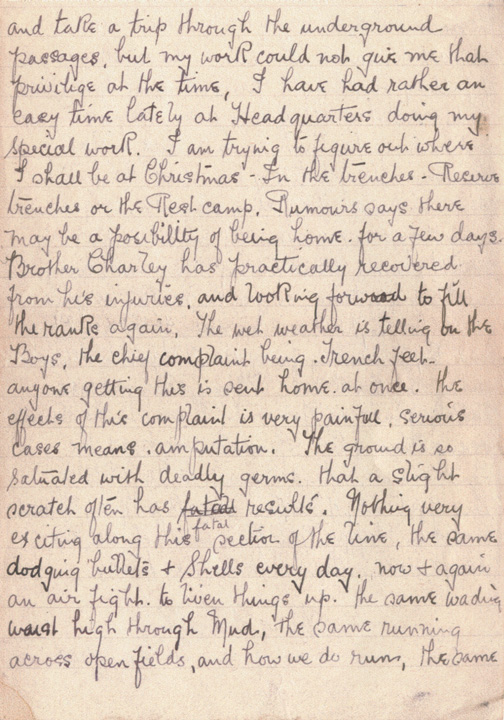 and take a trip through the underground
passages, but my work could not give me that
privilige at the time, I have had rather an
easy time lately at Headquarters doing my
special work. I am trying to figure out where
I shall be at Christmas - In the trenches - Reserve
trenches or the Rest camp. Rumours says there
may be a posibillty of being home. for a few days.
Brother Charley has practically recovered
from his injuries, and looking forward to fill
the ranks again, The wet weather is telling on the
Boys, the chief complaint being. Trench feet-
anyone getting this is sent home. at once. the
effects of this complaint is very painful, serious
cases means. amputation. The ground is so
satuated with deadly germs. that a slight
scratch often has fatal results. Nothing very
exciting along this section of the line, the same
dodging bullets + Shells every day. now + again
an air fight. to liven things up. the same wading
waist high through Mud, the same running
across open fields, and how we do run, the same